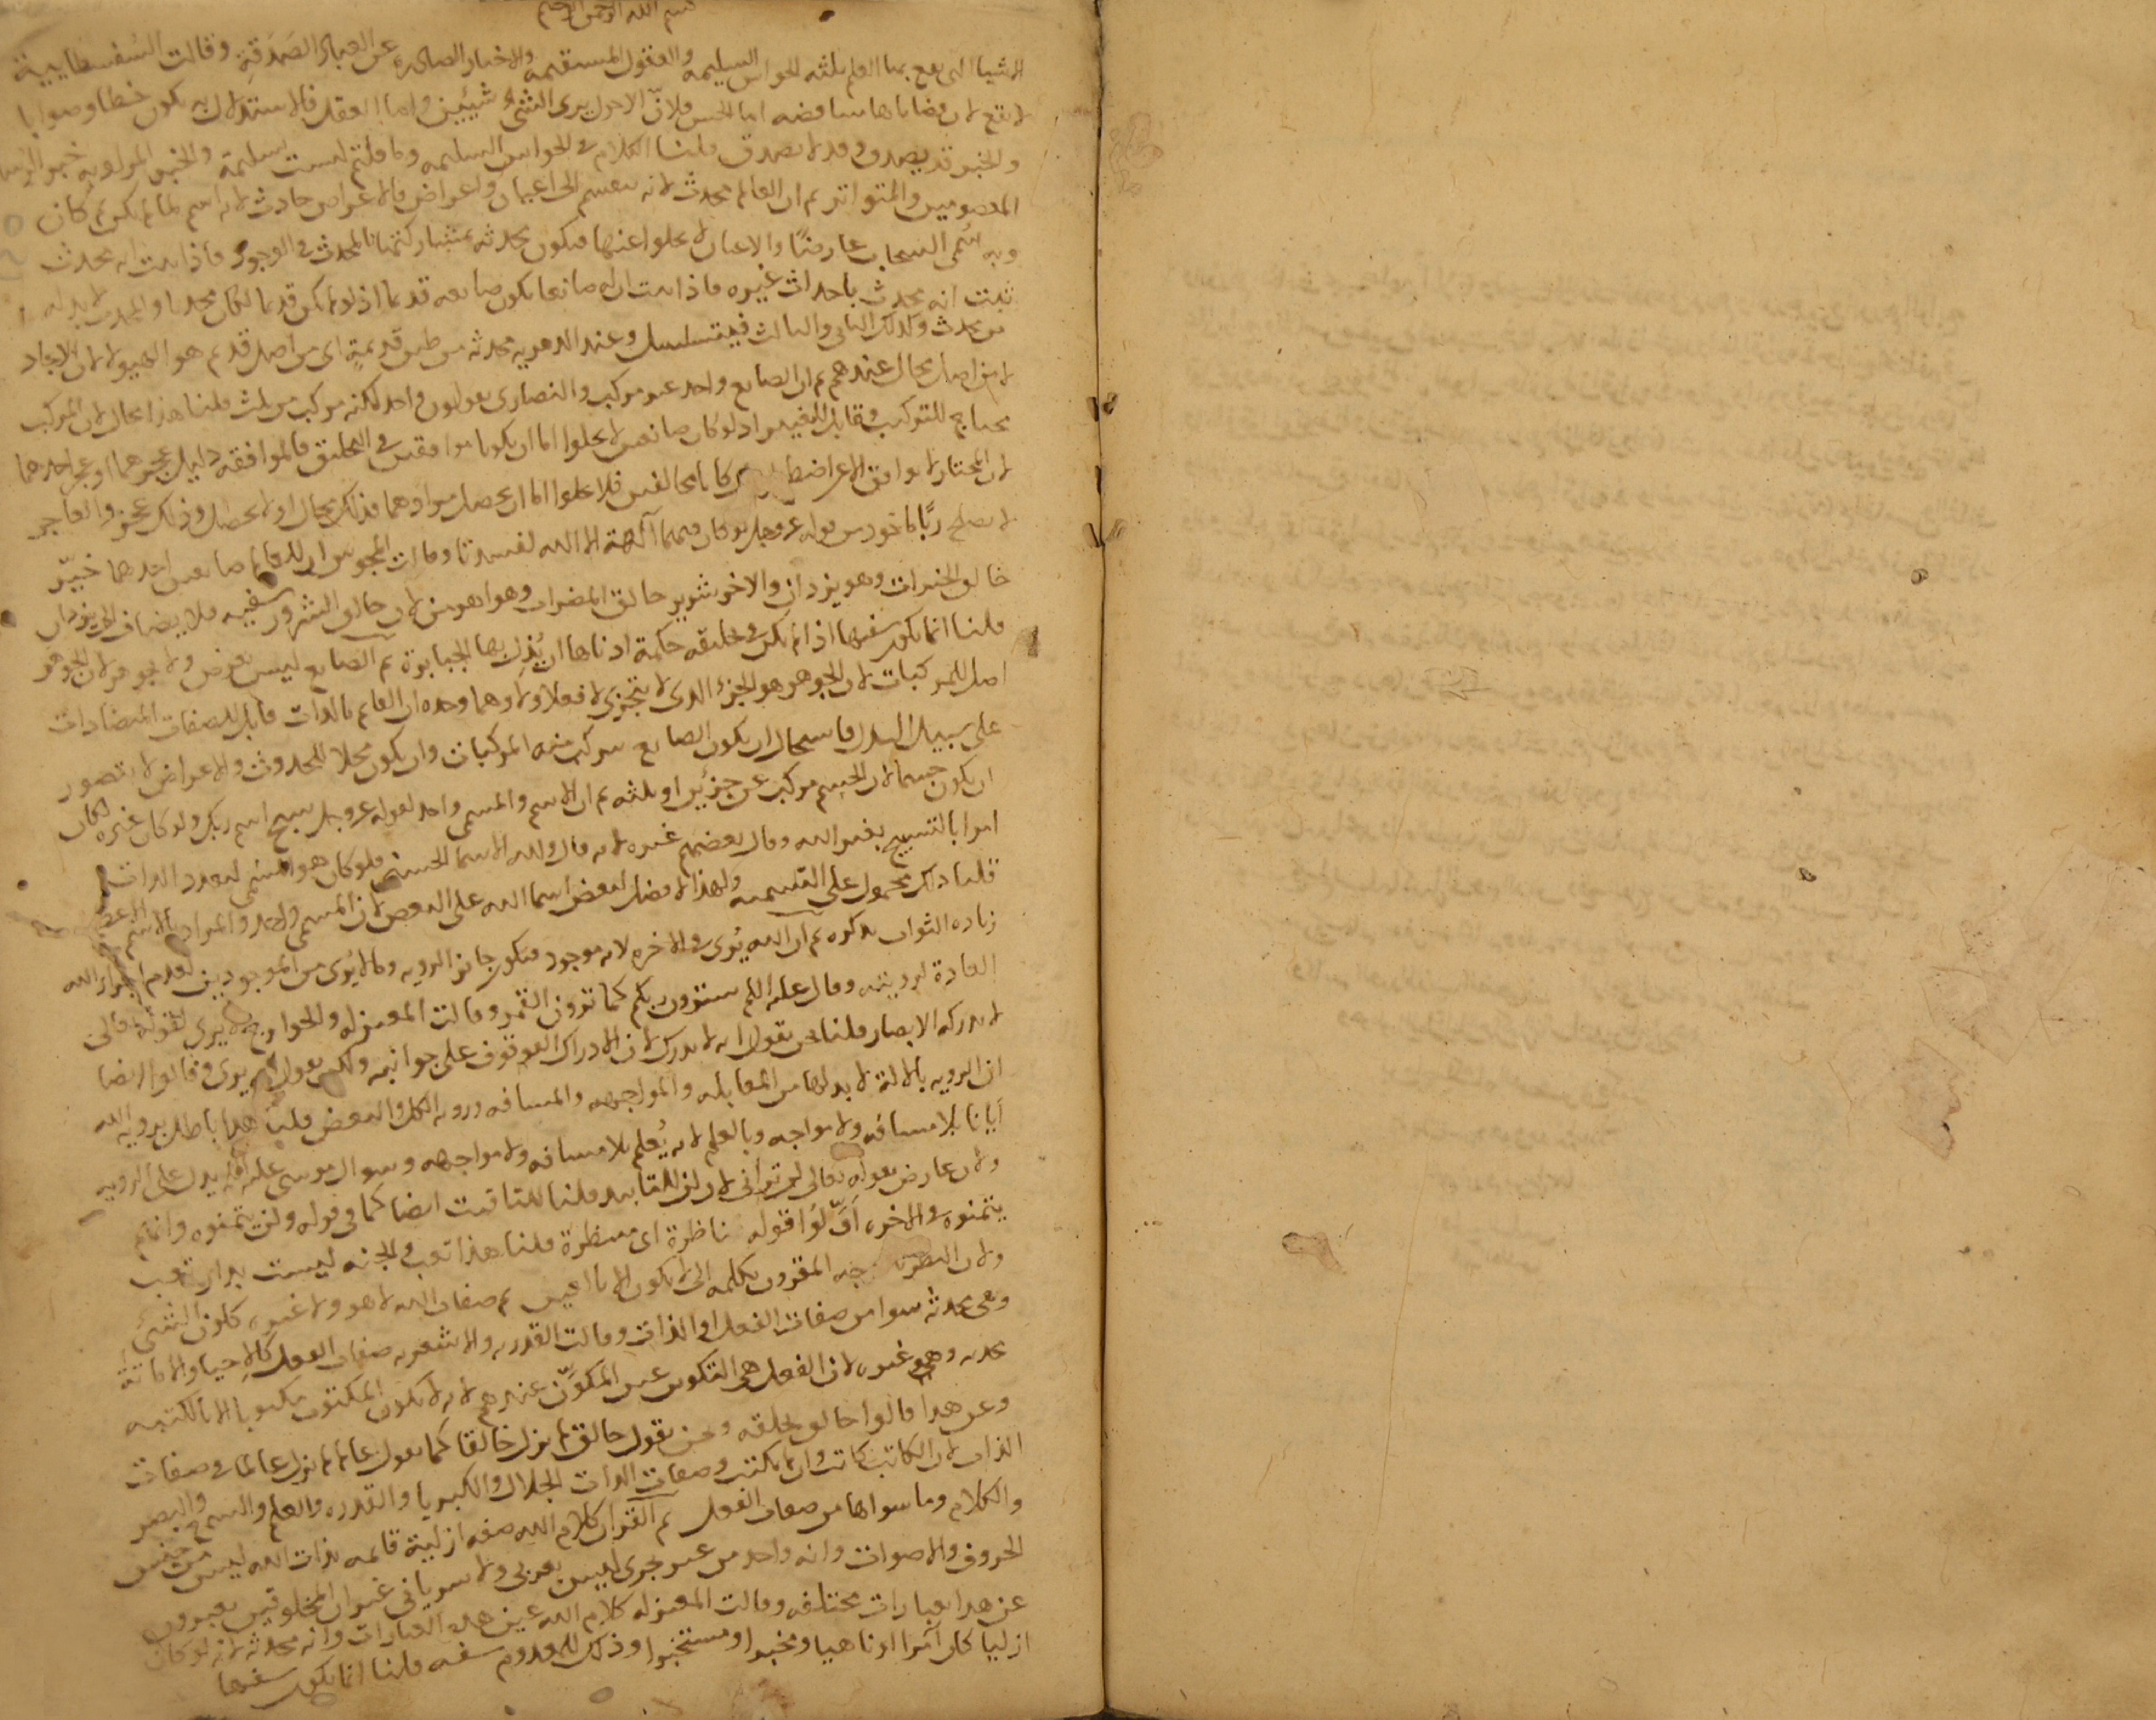 بسم الله الرحمن الرحيم
الاشيا التى يقع بها العلم ثلثه الحواس السليمه والعقول المستقيمه والاخبار الصادره عن العباد الصَدَقةِ وقالت السُفسطاييية
لا يقع لان قضاياها متناقضه اما الحس فلانّ الاحول يرى الشئَ شيئين واما العقل فالاستدلال به يكون خطا وصوابا
والخبر قد يصدق وقد لا يصدق قلنا الكلام فى الحواس السليمه وما قلتم ليست بسليمة والخبر المراد به خبر
المعصومين والمتواتر ثم ان العالم محدث لانه ينقسم الى اعيان واعراض فالاعراض حادث لانه اسم لما لم يكن ثم كان
وبه سُمى السحاب عارضًا والاعيان لا يخلوا عنها فيكون محدثه بمشاركتها المحدث فى الوجود فاذا ثبت انه محدث
ثبت انه محدث باحداث غيره فاذا ثبت ان له صانعا يكون صانعه قديما اذ لو لم يكن قديما لكان محدثا والمحدث لا بد له
من محدث وكذلك الثانى والثالث فيتسلسل وعند الدهريه محدثه من طين قديمةٍ اى من اصل قديم هو الهيولا لان الايجاد
لا من اصل محال عندهم ثم ان الصانع واحد غير مركب والنصارى يقولون واحد لكنه مركب من ثلث قلنا هذا محال لان المركب
يحتاج للتركيب وقابل للتغير اذ لو كان صانعين لا يخلوا اما ان يكونا موافقين فى التخليق فالموافقه دليل عجزهما او عجز احدهما
لان المختار لا يوافق الا عن اضطرار كانا مخالفين فلا يخلوا اما ان يحصل مرادهما فذلك محال او لا يحصل وذلك عجز والعاجز
لا يصلح ربًّا ماخوذ من قوله عز وجل لو كان فيهما آلهة الا الله لفسدتا وقالت المجوس ان للعالم صانعين احدهما خيّر
خالق الخيرات وهو يزدان والاخر شرير خالق المضرات وهو اهرمن لان خالق الشرور سفيه فلا يضاف الى يزدان
قلنا انما يكون سفيها اذا لم يكن فى تخليقه حكمة ادناها ان يُذِل بها الجبابرة ثم الصانع ليس بعرض ولا بجوهر لان الجوهر
اصل للمركبات لان الجوهر هو الجزء الذى لا يتجزى لا فعلا ولا وهما وحده ان القايم بالذات قابل للصفات المتضادات
على سبيل البدل فاستحال ان يكون الصانع يتركب منه المركبات وان يكون محلا للحدوث والاعراض لا يتصور
ان يكون جسما لان الجسم مركب عن جزئين او ثلثه ثم ان الاسم والمسمى واحد لقوله عز وجل سبح اسم ربك ولو كان غيره لكان
امرا بالتسبيح بغير الله وقال بعضهم غيره لانه قال ولله الاسما الحسنى فلو كان هو المسمى لتعدد الذات
قلنا ذلك محمول على التسميه ولهذا لا فضل لبعض اسما الله على البعض لان المسمى واحد والمراد بالاسم الاعظم
زياده الثواب بذكره ثم ان الله يُرى فى الاخره لانه موجود فيكون جايز الرويه وما لا يُرى من الموجودين لعدم اجراء الله
العادة لرويته وقال عليه السلم سترون ربكم كما ترون القمر وقالت المعتزله والخوارج لا يرى لقوله تعالى
لا تدركه الابصار قلنا نحن نقول انه لا يدرك لان الادراك الوقوف على جوانبه ولكن نقول انه يرى وقالوا ايضا
ان الرويه بالآلة لا بد لها من المقابله والمواجهه والمسافه وروية الكل والبعض قلنا هذا باطل بروية الله
ايانا بلا مسافه ولا مواجهه وبالعلم لانه يُعلم بلا مسافه ولا مواجهه وسوال موسى عليه السلم يدل على الرويه
ولا يعارض بقوله تعالى لن ترانى لان لن للتابيد قلنا للتاقيت ايضا كما فى قوله ولن يتمنوه وانهم
يتمنوه فى الاخره اَوَّلُوا قوله ناظرة اى منتظرة قلنا هذا تعب والجنه ليست بدار تعب
ولان النظر المقرون بكلمه الى لا يكون الا بالعين ثم صفات الله لا هو ولا غيره كلون الشئ
وهى محدثه سوا من صفات الفعل او الذات وقالت القدريه والاشعريه صفات الفعل كالاحيا والاماتة
محدثه وهى غيره لان الفعل هى التكوين عين المكوَّن عندهم لانه لا يكون المكتوب مكتوبا الا بالكتبه
وعن هذا قالوا خالق بخلقه ونحن نقول خالق لم يزل خالقا كما نقول عالم لم يزل عالما فى صفات
الذات لان الكاتب كاتب وان لم يكتب وصفات الذات الجلال والكبريا والقدره والعلم والسمع والبصر
والكلام وما سواها من صفات الفعل ثم القران كلام الله صفه ازلية قايمه بذات الله ليس من جنس
الحروف والاصوات وانه واحد من غير تجزى ليس بعربى ولا سريانى غير ان المخلوقين يعبرون
عن هذا بعبارات مختلفه وقالت المعتزله كلام الله عين هذه العبارات وانه محدثه لانه لو كان
ازليا كان آمرا او ناهيا ومخبرا ومستخبرا وذلك للمعدوم سفه قلنا انما يكون سفها